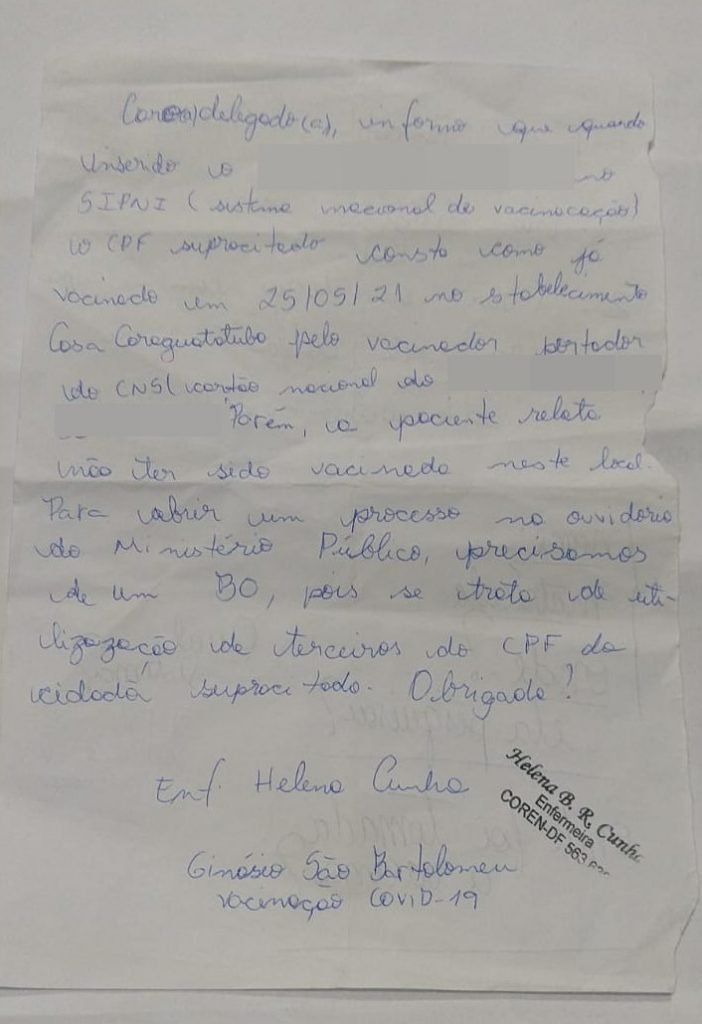 Caro(a) delegado(a), informo que quando
inserido o
no
SIPNI (sistema nacional de vacinocação)
o CPF supracitado consta como já
vacinado em 25/05/21 no stabelecimento
Casa Caraguatatuba pelo vacinador portador
do CNS( cartão nacional do
Porém, a paciente relata
não ter sido vacinada neste local.
Para abrir um processo na ouvidoria
do Ministério Público, precisamos
de um BO, pois se trata de uti-
lizazação de terceiros do CPF da
cidadã supracitada. Obrigada!
Enf. Helena Cunha
Helena B. R. Cunha
Enfermeira
COREN-DF 563
Ginásio São Bartolomeu
vacinação COVID-19